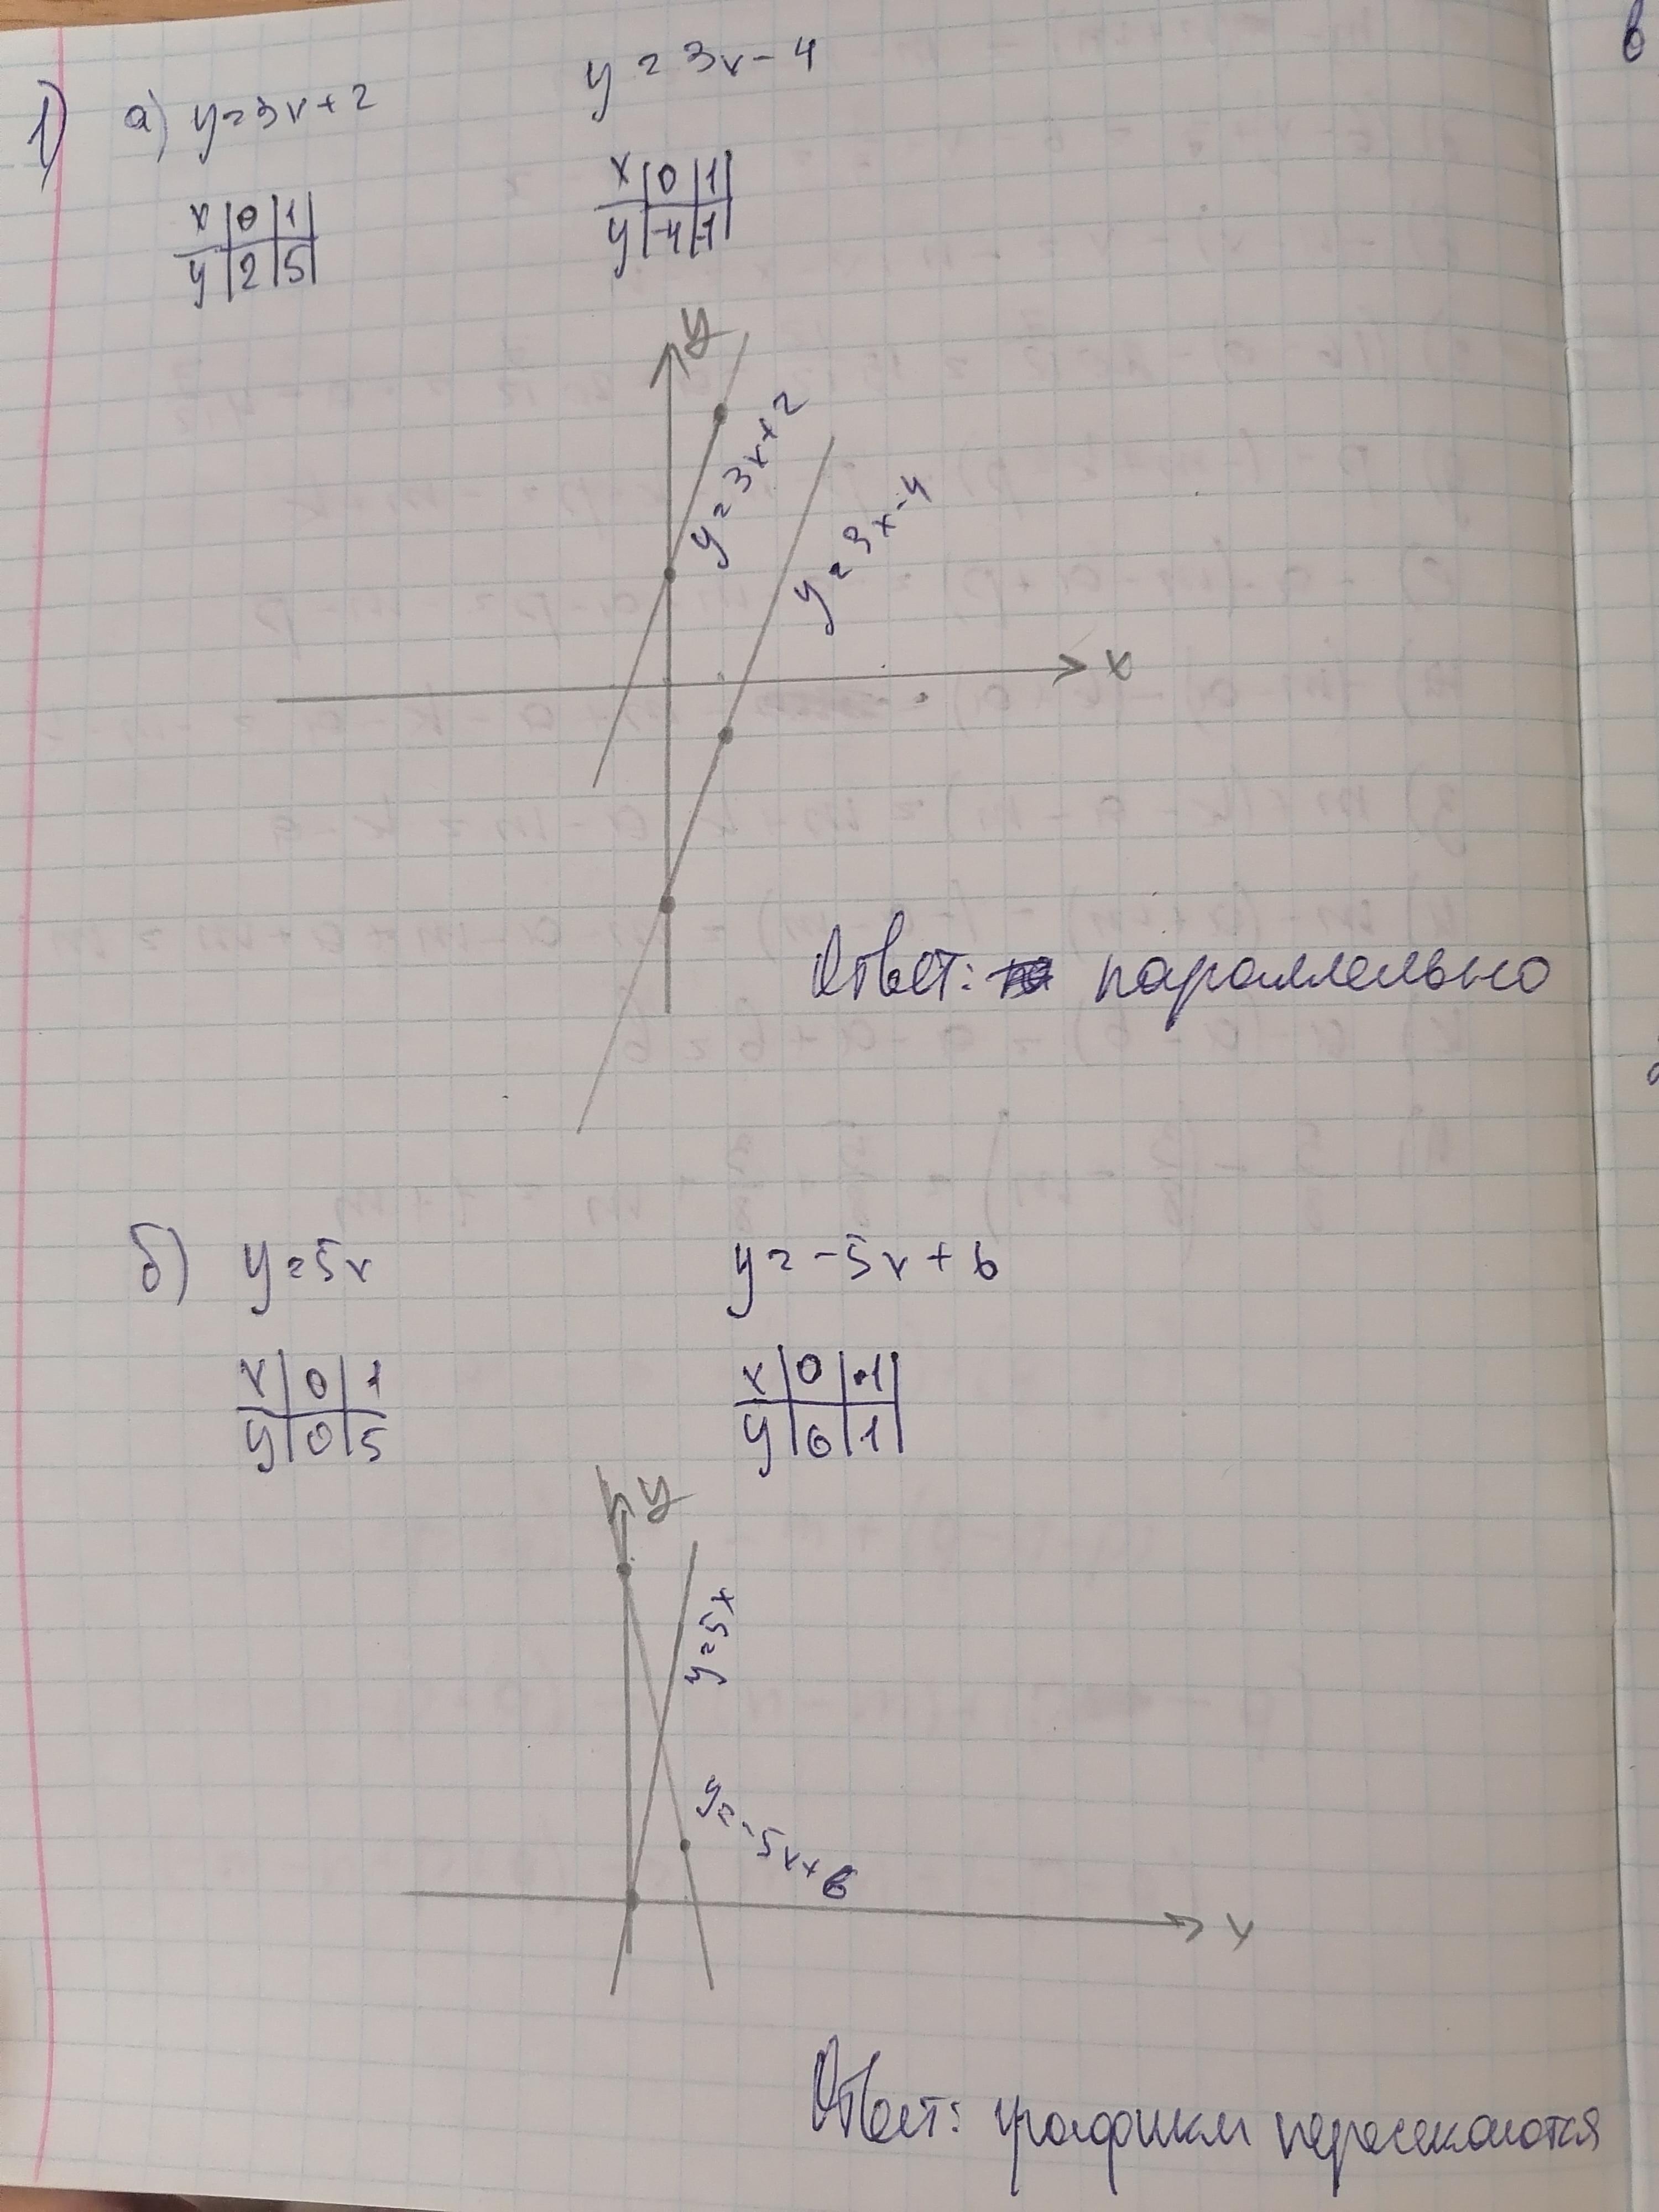 1) а) y=3x+2 y=3x-4
x 0 1
y 2 5
x 0 1
y -4 -1
y
y=3x+2
y=3x-4
x
Ответ: параллельно
б) y=5x y=-5x+6
x 0 1
y 0 5
x 0 1
y 6 1
y
y=5x
y=-5x+6
x
Ответ: графики пересекаются